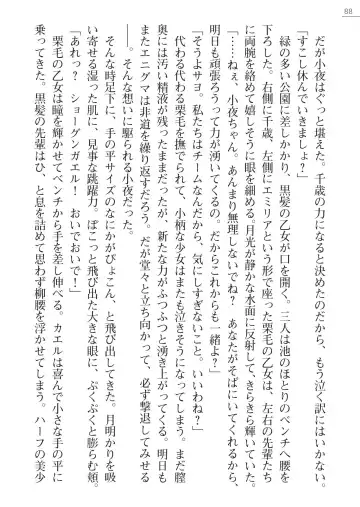 88
だが小夜はぐっと堪えた。千歳の力になると決めたのだから、もう泣く訳にはいかない。
「すこし休んでいきましょ？」
緑の多い公園に差しかかり、黒髪の乙女が口を開く。三人は池のほとりのベンチへ腰を
下ろした。右側に千歳、左側にエミリアという形で座った栗毛の乙女は、左右の先輩たち
に両腕を絡めて嬉しそうに眼を細める。月光が静かな水面に反射し、きらきら輝いていた。
「……ねぇ、小夜ちゃん。あんまり無理しないでね？　あなたがそばにいてくれるから、
明日も頑張ろうって力が湧いてくるの。だからこれからも一緒よ？」
「そうよサヨ。私たちはチームなんだから、気にしすぎないこと。いいわね？」
代わる代わる栗毛を撫でられて、小柄な少女はまたも泣きそうになってしまう。
新たな力がふつふつと湧き上がってくる。明日も
エニグマは非道を繰り返すだろう。だが堂々と立ち向かって、必ず撃退してみせる
――。そんな想いに駆られる小夜だった。
そんな時足下に、手の平サイズのなにかがぴょこん、と飛び出してきた。月明かりを吸
い寄せる湿った肌に、見事な跳躍力。ぽこっと飛び出た大きな眼に、ぷくぷくと膨らむ頬。
「あれっ？　ショーグンガエル！　おいでおいで！」
栗毛の乙女は瞳を輝かせてベンチから手を差し伸べる。カエルは喜んで小さな手の平に
乗ってきた。黒髪の先輩はひ、と息を詰めて思わず柳腰を浮かせてしまう。ハーフの美少